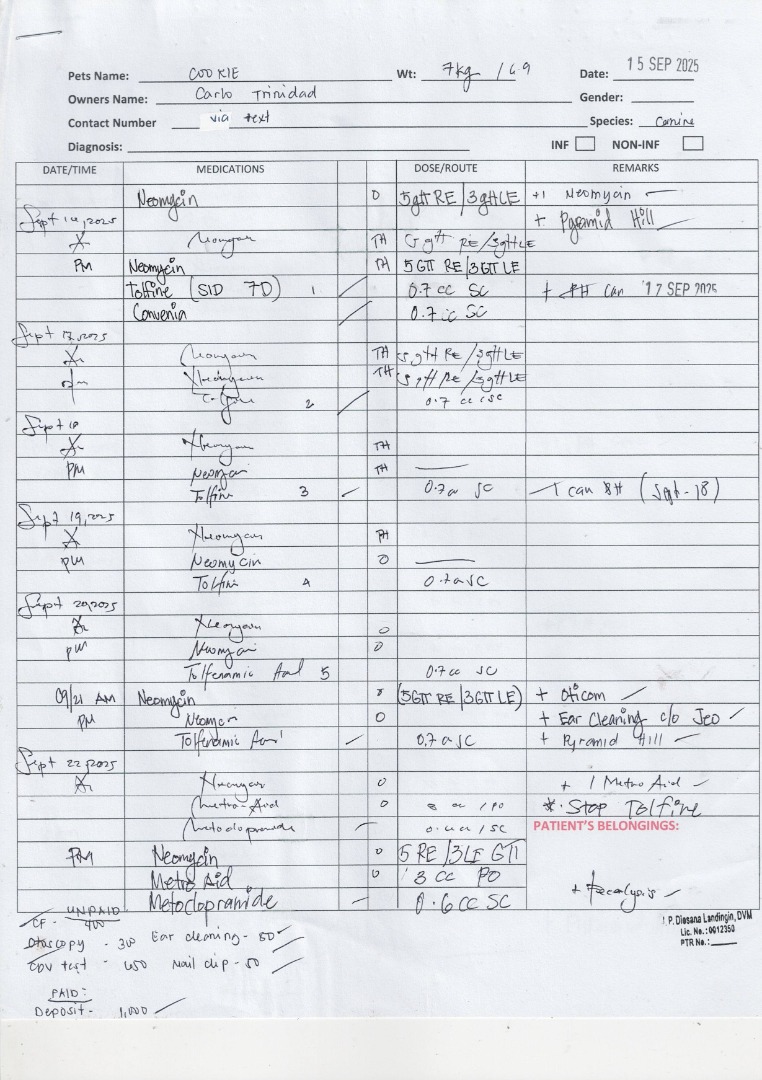 Pets Name: COOKIE Wt: 7kg / Date: 15 SEP 2025
Owners Name: Carlo Trinidad Gender:
Contact Number via text Species: Canine
Diagnosis: INF NON-INF
DATE/TIME MEDICATIONS DOSE/ROUTE REMARKS
Neomycin 0 5gtt RE/3gtt LE +1 Neomycin
Sept 16,2025 + Pyramid Hill
Neomycin TH 5gtt RE/3gtt LE
PM Neomycin TH 5GTT RE/3GTT LE
Tolfine (SID 7D) 1 0.7 cc SC + can 17 SEP 2025
Convenia 0.7 cc SC
Sept 17,2025
Neomycin TH 5gtt RE/3gtt LE
pm Neomycin TH 5gtt RE/3gtt LE
Tolfine 2 0.7 cc SC
Sept 18
Neomycin TH
PM Neomycin TH
Tolfine 3 0.7 SC 1 can (Sept-18)
Sept 19,2025
Neomycin TH
PM Neomycin 0
Tolfine 4 0.7 SC
Sept 20,2025
Neomycin 0
PM Neomycin 0
Tolfenamic Acid 5 0.7cc SC
09/21 AM Neomycin (5GTT RE/3GTT LE) + Oticom
PM Neomycin 0 + Ear Cleaning c/o Jeo
Tolfenamic Acid 0.7 SC + Pyramid Hill
Sept 22,2025
Neomycin 0 + 1 Metro Aid
Metro-Aid 0 /PO *. Stop Tolfine
Metoclopramide /SC PATIENT'S BELONGINGS:
PM Neomycin 0 5 RE/3LE GTT
Metro Aid 0 3 cc PO
Metoclopramide 0.6 cc SC + fecalysis
UNPAID
CF - 400
Otoscopy - 300 Ear cleaning - 50
CDV test - 650 Nail clip - 50
P. Diosana Landingin, DVM
Lic. No.: 0012350
PTR No.:
PAID:
Deposit - 1,000